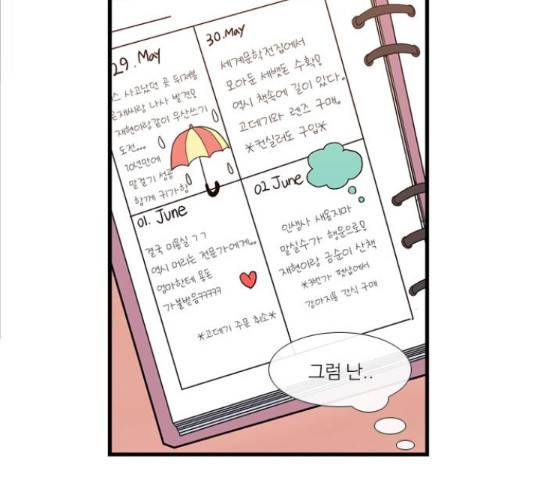 29. May
스 사고났던 곳 뒤져볼
재현이랑같이 우산쓰기
도전...
10년만에
말걸기 성공
함께 귀가함
30. May
세계문학전집에서
모아둔 세뱃돈 수확!
역시 책속에 길이 있다.
고데기와 렌즈 구매.
*컨실러도 구입*
01. June
결국 미용실 ㄱㄱ
역시 머리는 전문가에게..
엄마한테 용돈
가불받음ㅋㅋㅋㅋㅋ
*고데기 주문 취소*
02 June
인생사 새옹지마
말실수가 행운으로!
재현이랑 금순이 산책
*3번가 편상에서
강아지용 간식 구매
그럼 난..